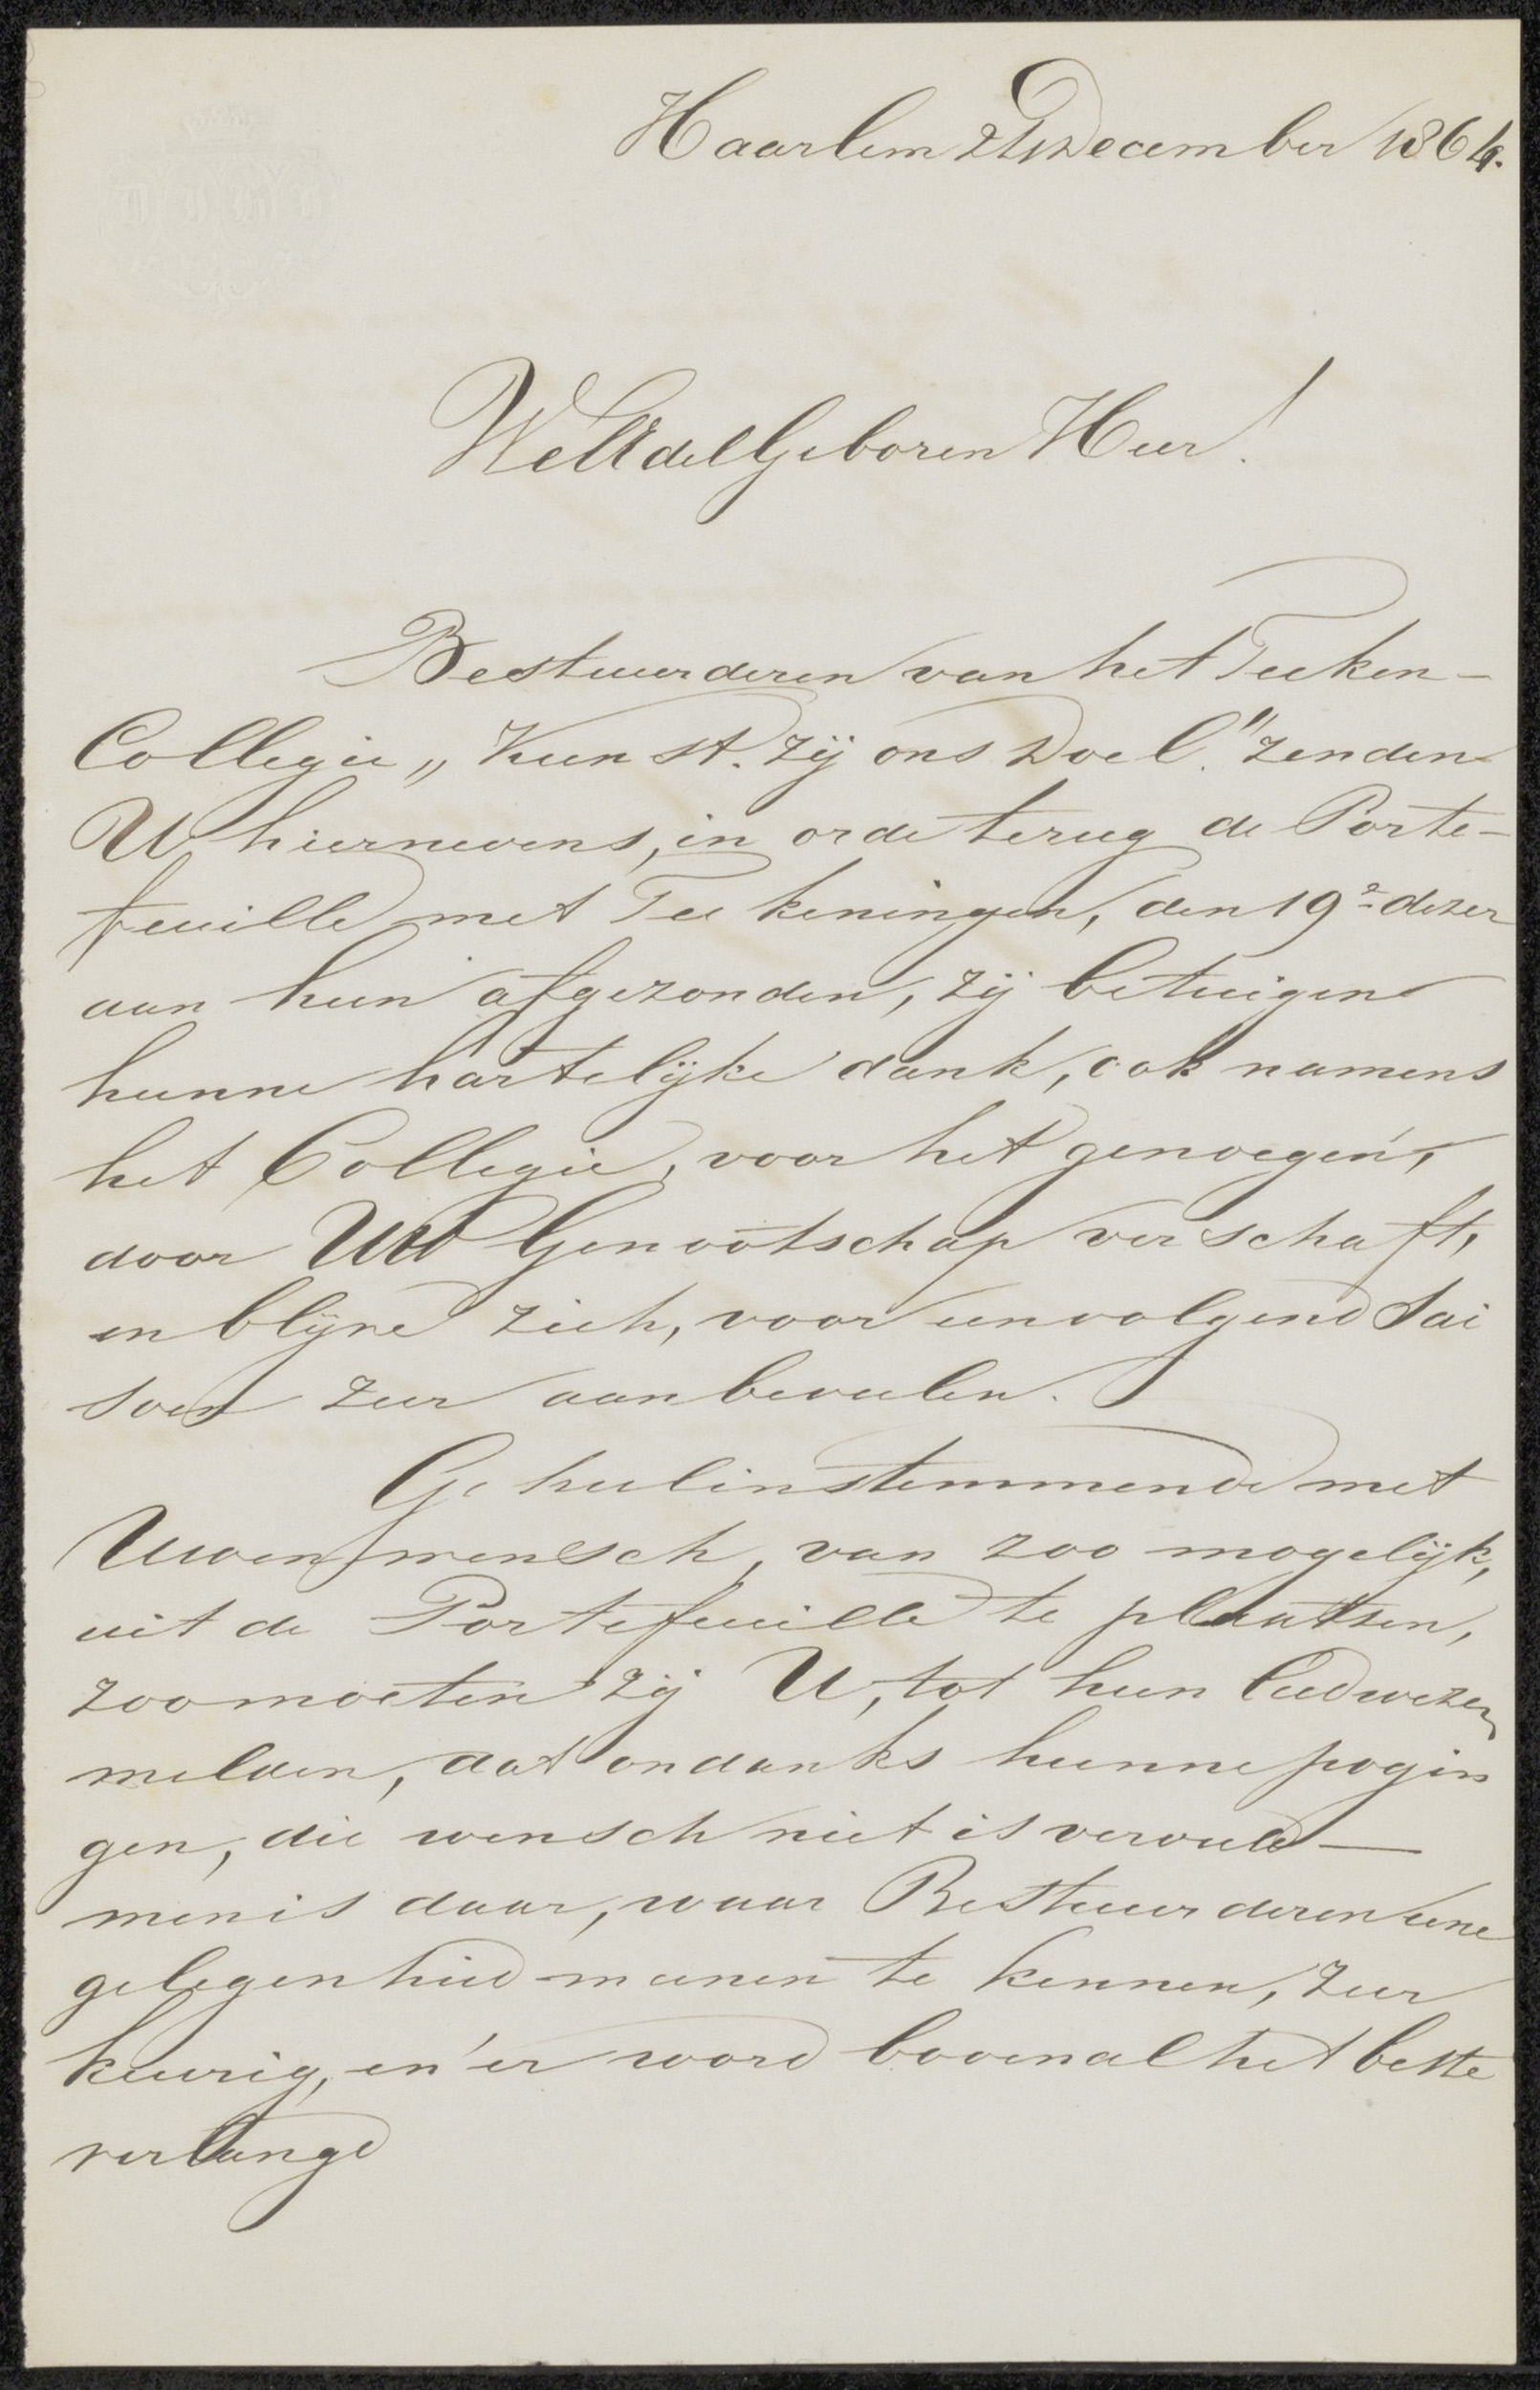 Haarlem 21 December 1864.
WelEdelGeboren Heer!
Bestuurderen van het Teeken-
Collegie „Kunst zij ons Doel." zenden
U hiernevens, in orde terug de Porte-
feuille met Teekeningen, den 19e dezer
aan hun afgezonden, zij betuigen
hunne hartelijke dank, ook namens
het Collegie, voor het genoegen,
door Uw Genootschap verschaft,
en blijve zich, voor een volgend Sai
soen zeer aanbevelen.
Geheel instemmende met
Uwen wensch, van zoo mogelijk,
uit de Portefeuille te plaatsen,
zoo moeten zij U, tot hun leedwezen
melden, dat ondanks hunne pogin
gen, die wensch niet is vervuld —
men is daar, waar Bestuurderen eene
gelegenheid meenen te kennen, zeer
keurig, en er word bovenal het beste
verlangd